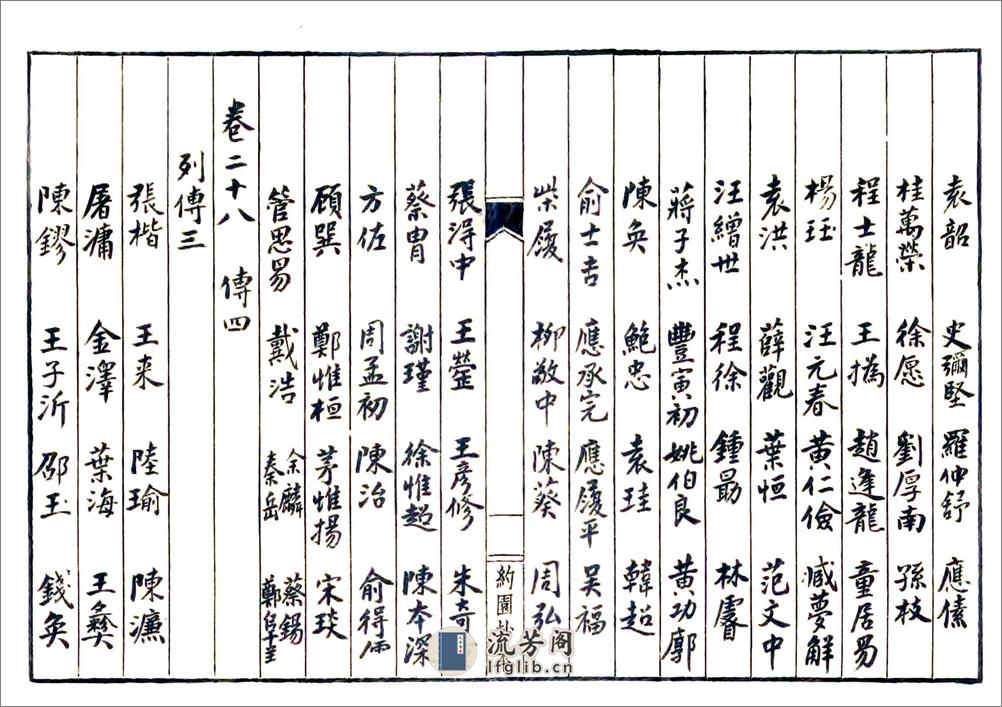 袁韶 史彌堅 羅仲舒 應𠎀
桂萬榮 徐愿 劉厚南 孫枝
程士龍 王撝 趙逢龍 童居易
楊珏 汪元春 黃仁儉 臧夢解
袁洪 薛觀 葉恒 范文中
汪繒世 程徐 鍾勗 林㬜
蔣子杰 豐寅初 姚伯良 黃功廓
陳奐 鮑忠 袁珪 韓超
俞士吉 應承完 應履平 吴福
柴履 柳敬中 陳葵 周弘
約園
張淂中 王瑩 王彦修 朱奇
蔡胄 謝瑾 徐惟超 陳本深
方佐 周孟初 陳治 俞得
顧巽 鄭惟桓 茅惟揚 宋琰
管思易 戴浩 余麟 秦岳 蔡錫 鄭
卷二十八 傳四
列傳三
張楷 王来 陸瑜 陳濂
屠滽 金澤 葉海 王彝
陳鏐 王子沂 邵玉 錢奐
流芳阁
lfglib.cn